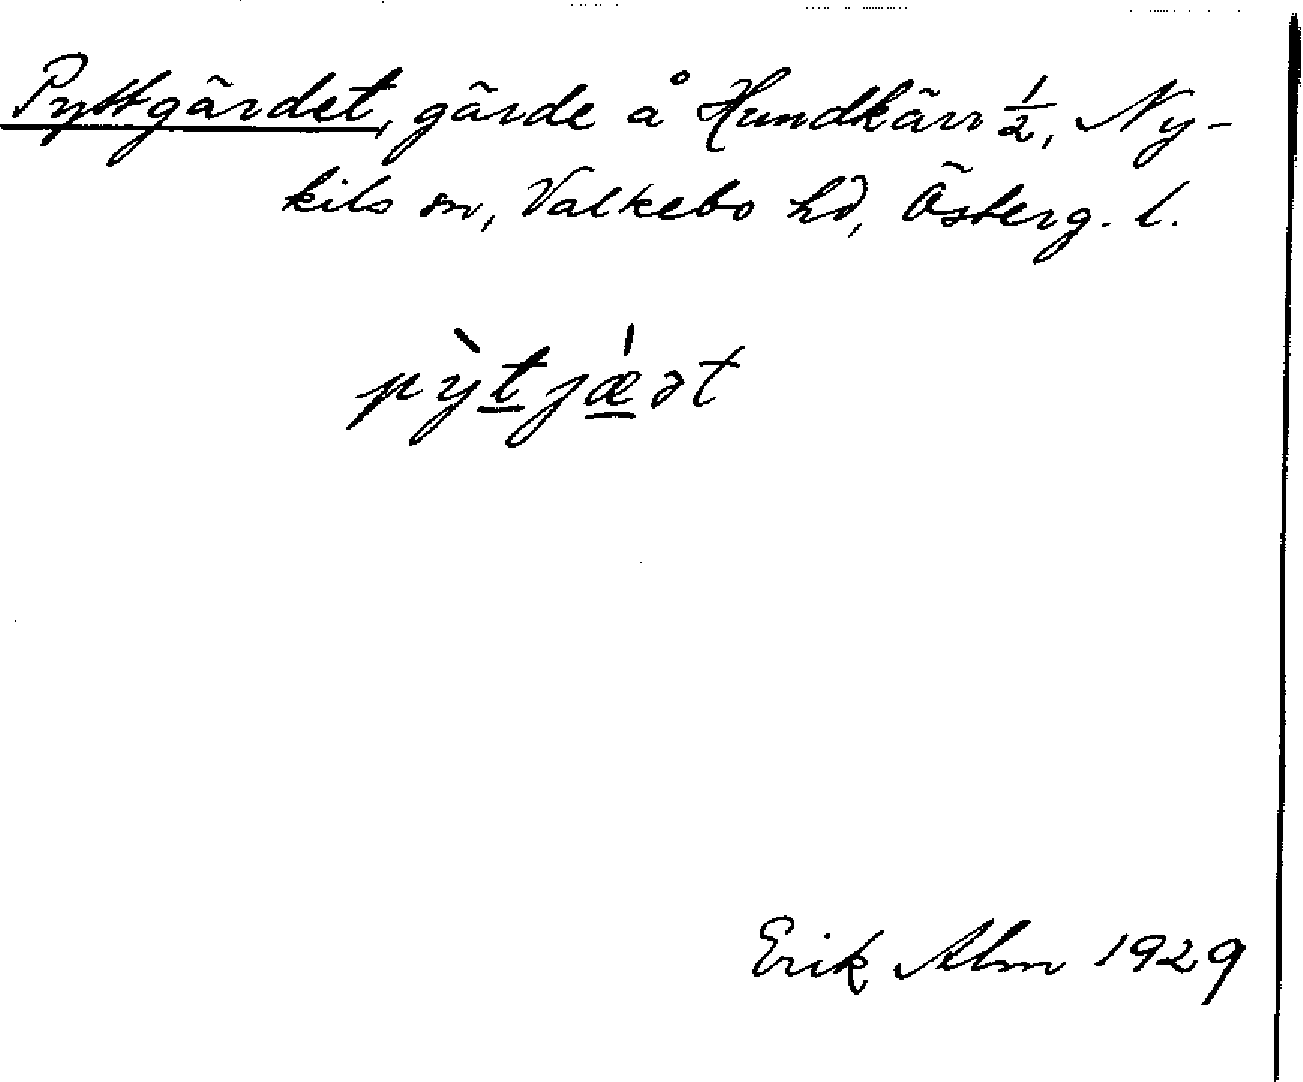 Pyttgärdet, gärde å Hundkärr ½, Ny-
kils sn, Valkebo hd, Österg. l.
pỳtjǽət
Erik Alm 1929